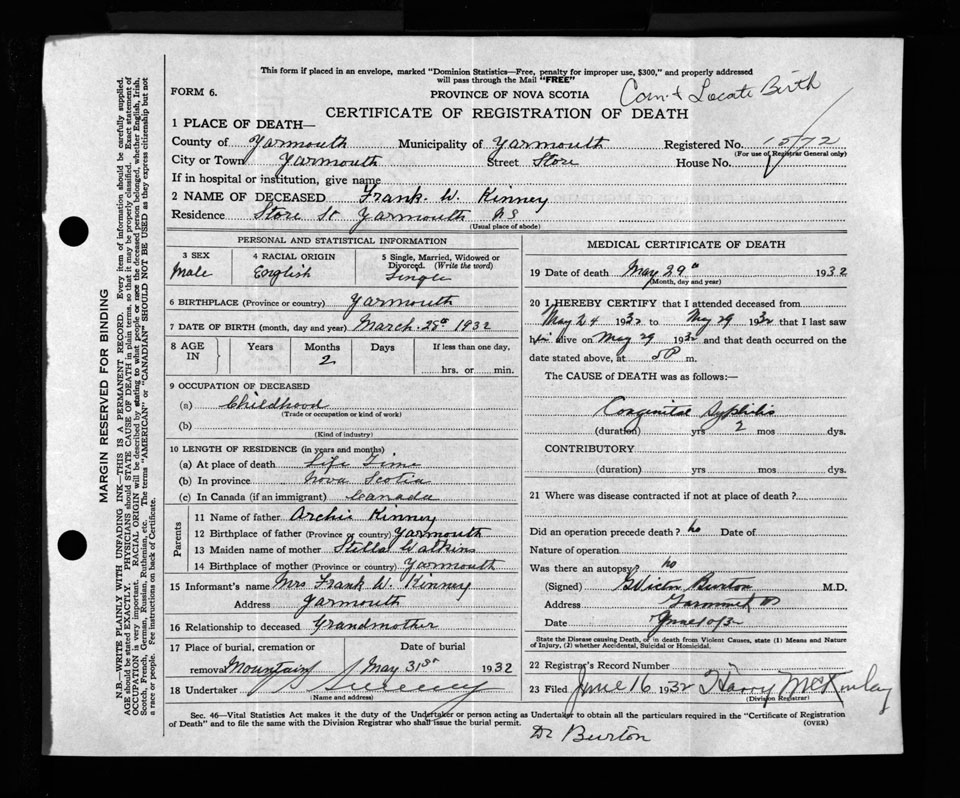 This form if placed in an envelope, marked "Dominion Statistics—Free, penalty for improper use, $300," and properly addressed
will pass through the Mail "FREE"
FORM 6.
PROVINCE OF NOVA SCOTIA
Locate Birth
CERTIFICATE OF REGISTRATION OF DEATH
1 PLACE OF DEATH—
County of Yarmouth Municipality of Yarmouth Registered No. 1572
(For use of Registrar General only)
City or Town Yarmouth Street Store House No.
If in hospital or institution, give name
2 NAME OF DECEASED Frank. W. Kinney
Residence Store St Yarmouth NS
(Usual place of abode)
PERSONAL AND STATISTICAL INFORMATION
3 SEX 4 RACIAL ORIGIN 5 Single, Married, Widowed or
Divorced. (Write the word)
Male English Single
6 BIRTHPLACE (Province or country) Yarmouth
7 DATE OF BIRTH (month, day and year) March. 28th 1932
8 AGE IN Years Months Days If less than one day,
2
hrs. or min.
9 OCCUPATION OF DECEASED
(a) Childhood
(Trade or occupation or kind of work)
(b)
(Kind of industry)
10 LENGTH OF RESIDENCE (in years and months)
(a) At place of death Life Time
(b) In province Nova Scotia
(c) In Canada (if an immigrant) Canada
Parents
11 Name of father Archie Kinney
12 Birthplace of father (Province or country) Yarmouth
13 Maiden name of mother Stella Watkins
14 Birthplace of mother (Province or country) Yarmouth
15 Informant's name Mrs Frank W. Kinney
Address Yarmouth
16 Relationship to deceased Grandmother
17 Place of burial, cremation or Date of burial
removal Mountain May 31st 1932
18 Undertaker Sweeney
(Name and address)
MEDICAL CERTIFICATE OF DEATH
19 Date of death May 29th 1932
(Month, day and year)
20 I HEREBY CERTIFY that I attended deceased from
May 24 1932 to May 29 1932 that I last saw
him alive on May 29 1932 and that death occurred on the
date stated above, at 5P m.
The CAUSE of DEATH was as follows:—
Congenital Syphilis
(duration) yrs 2 mos dys.
CONTRIBUTORY
(duration) yrs mos dys.
21 Where was disease contracted if not at place of death?
Did an operation precede death? no Date of
Nature of operation
Was there an autopsy? no
(Signed) G Victor Burton M.D.
Address Yarmouth NS
Date June 10/32
State the Disease causing Death, or in death from Violent Causes, state (1) Means and Nature
of Injury, (2) whether Accidental, Suicidal or Homicidal.
22 Registrar's Record Number
23 Filed June 16 1932 Harry McKinlay
(Division Registrar)
Sec. 46—Vital Statistics Act makes it the duty of the Undertaker or person acting as Undertaker to obtain all the particulars required in the "Certificate of Registration
of Death" and to file the same with the Division Registrar who shall issue the burial permit. (OVER)
Dr Burton
MARGIN RESERVED FOR BINDING
N.B.—WRITE PLAINLY WITH UNFADING INK—THIS IS A PERMANENT RECORD. Every item of information should be carefully supplied.
AGE should be stated EXACTLY. PHYSICIANS should STATE CAUSE OF DEATH in plain terms, so that it may be properly classified. Exact statement of
OCCUPATION is very important. RACIAL ORIGIN will be described by stating to what people or race the deceased person belonged, whether English, Irish,
Scotch, French, German, Russian, Ruthenian, etc. The terms "AMERICAN" or "CANADIAN" SHOULD NOT BE USED as they express citizenship but not
a race or people. See instructions on back of Certificate.